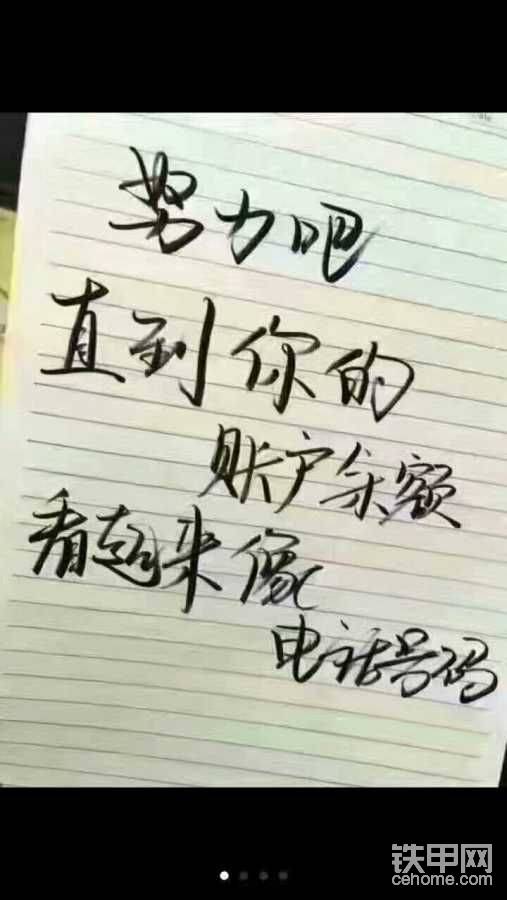 努力吧
直到你的
账户余额
看起来像
电话号码
铁甲网
cehome.com